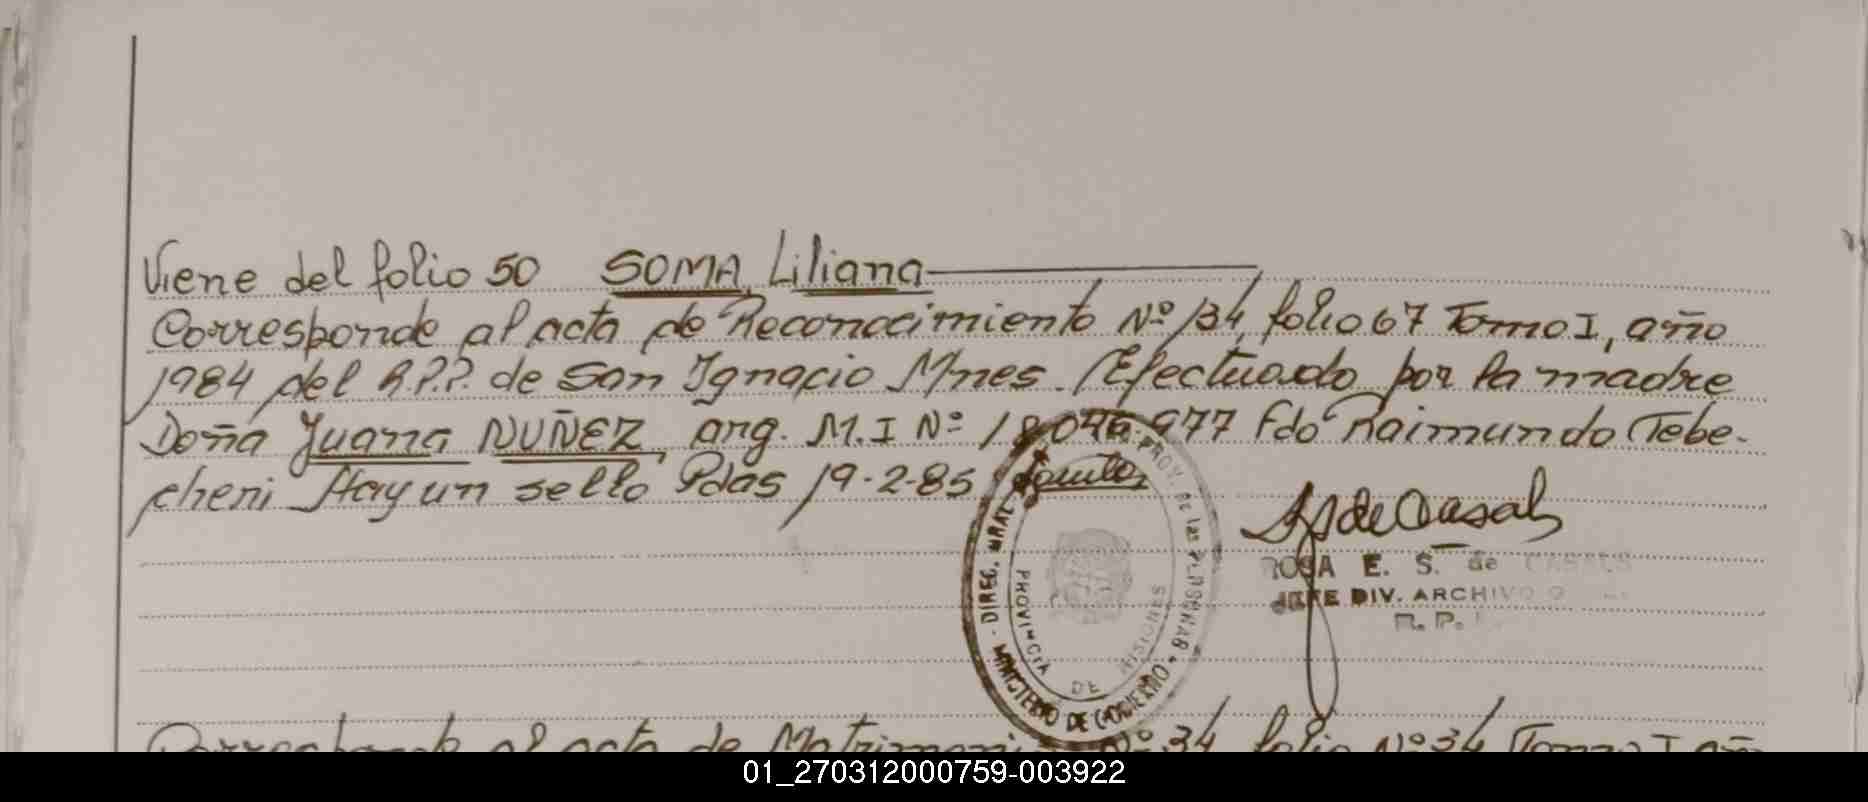 Viene del folio 50 SOMA, Liliana
Corresponde al acta de Reconocimiento Nº 134, folio 67 Tomo I, año
1984 del R.P.P. de San Ignacio Mnes. Efectuado por la madre
Doña Juana NUÑEZ, arg. M.I Nº 18.046.977 Fdo Raimundo Tebe-
cheri Hay un sello Pdas 19-2-85
ROSA E. S. de CASALS
JEFE DIV. ARCHIVO
R. P.
DIREC. GRAL PROV. de las PERSONAS - MINISTERIO DE GOBIERNO -
PROVINCIA DE MISIONES
Corresponde al acta de Matrimonio Nº 34 folio Nº 34 Tomo I año
01_270312000759-003922